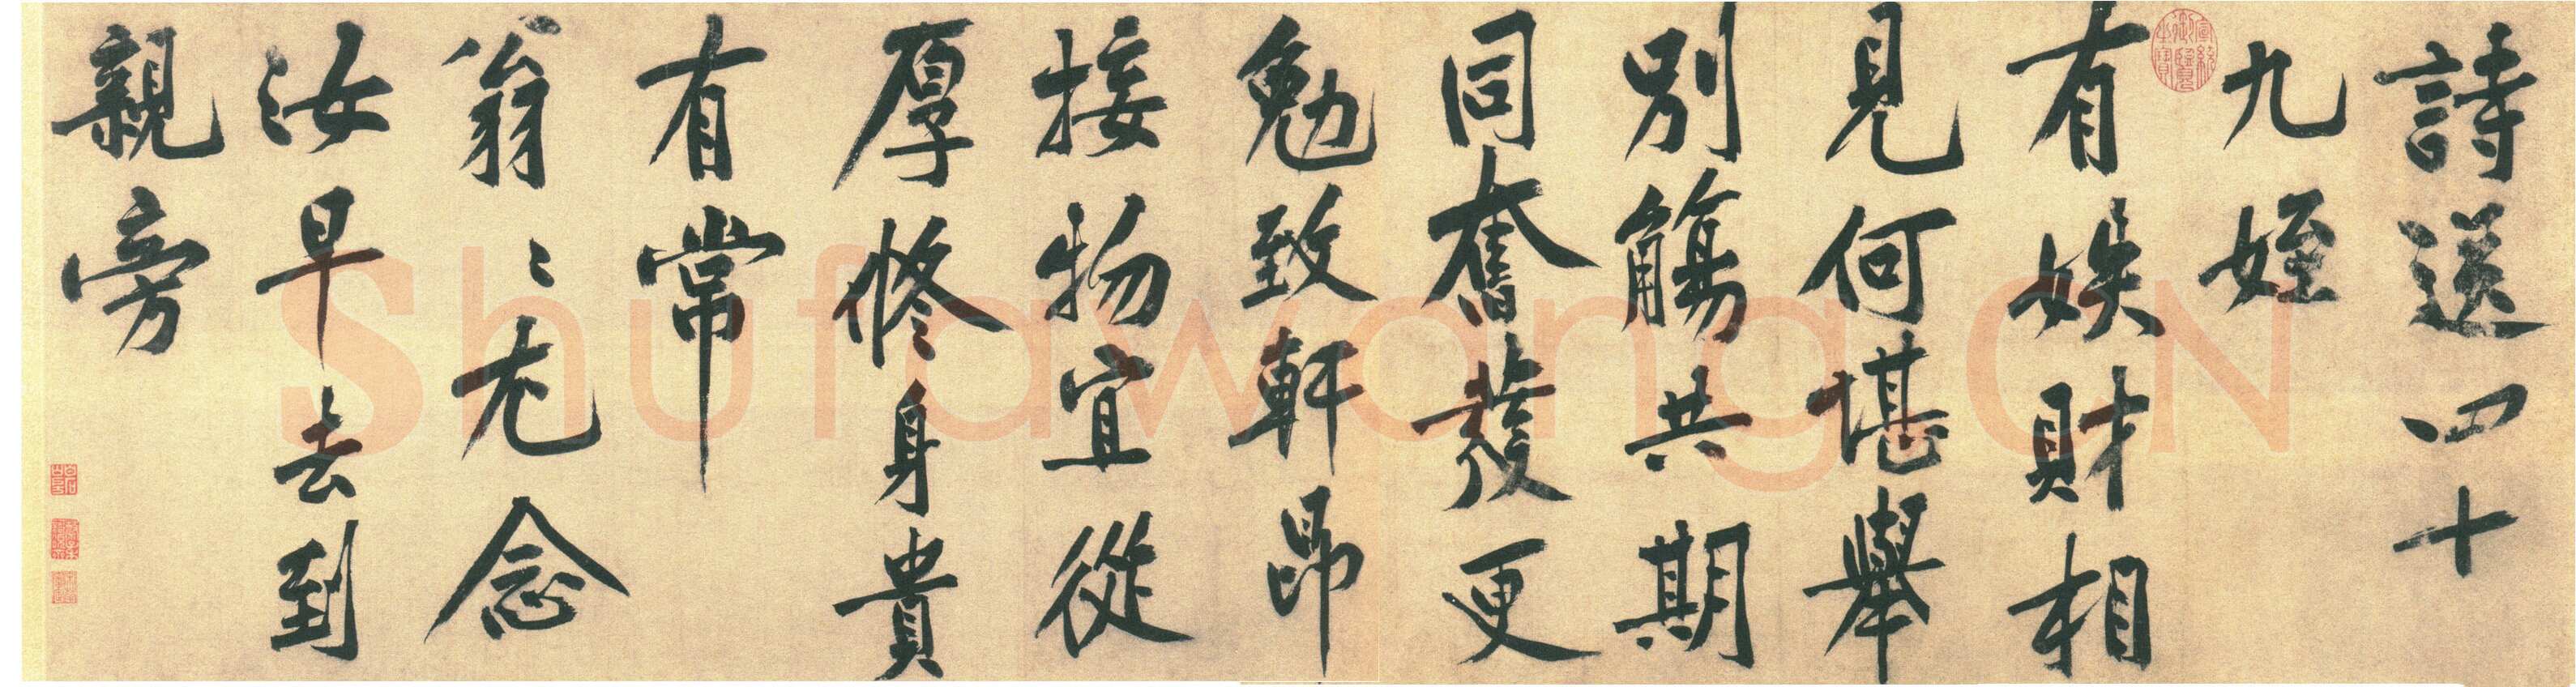 詩送四十
九姪
有娭財相
見何堪舉
別觴共期
同奮發更
勉致軒昂
接物宜從
厚修身貴
有常
翁〻尤念
汝早去到
親旁
宣統御覽之寶
Shufawang.CN